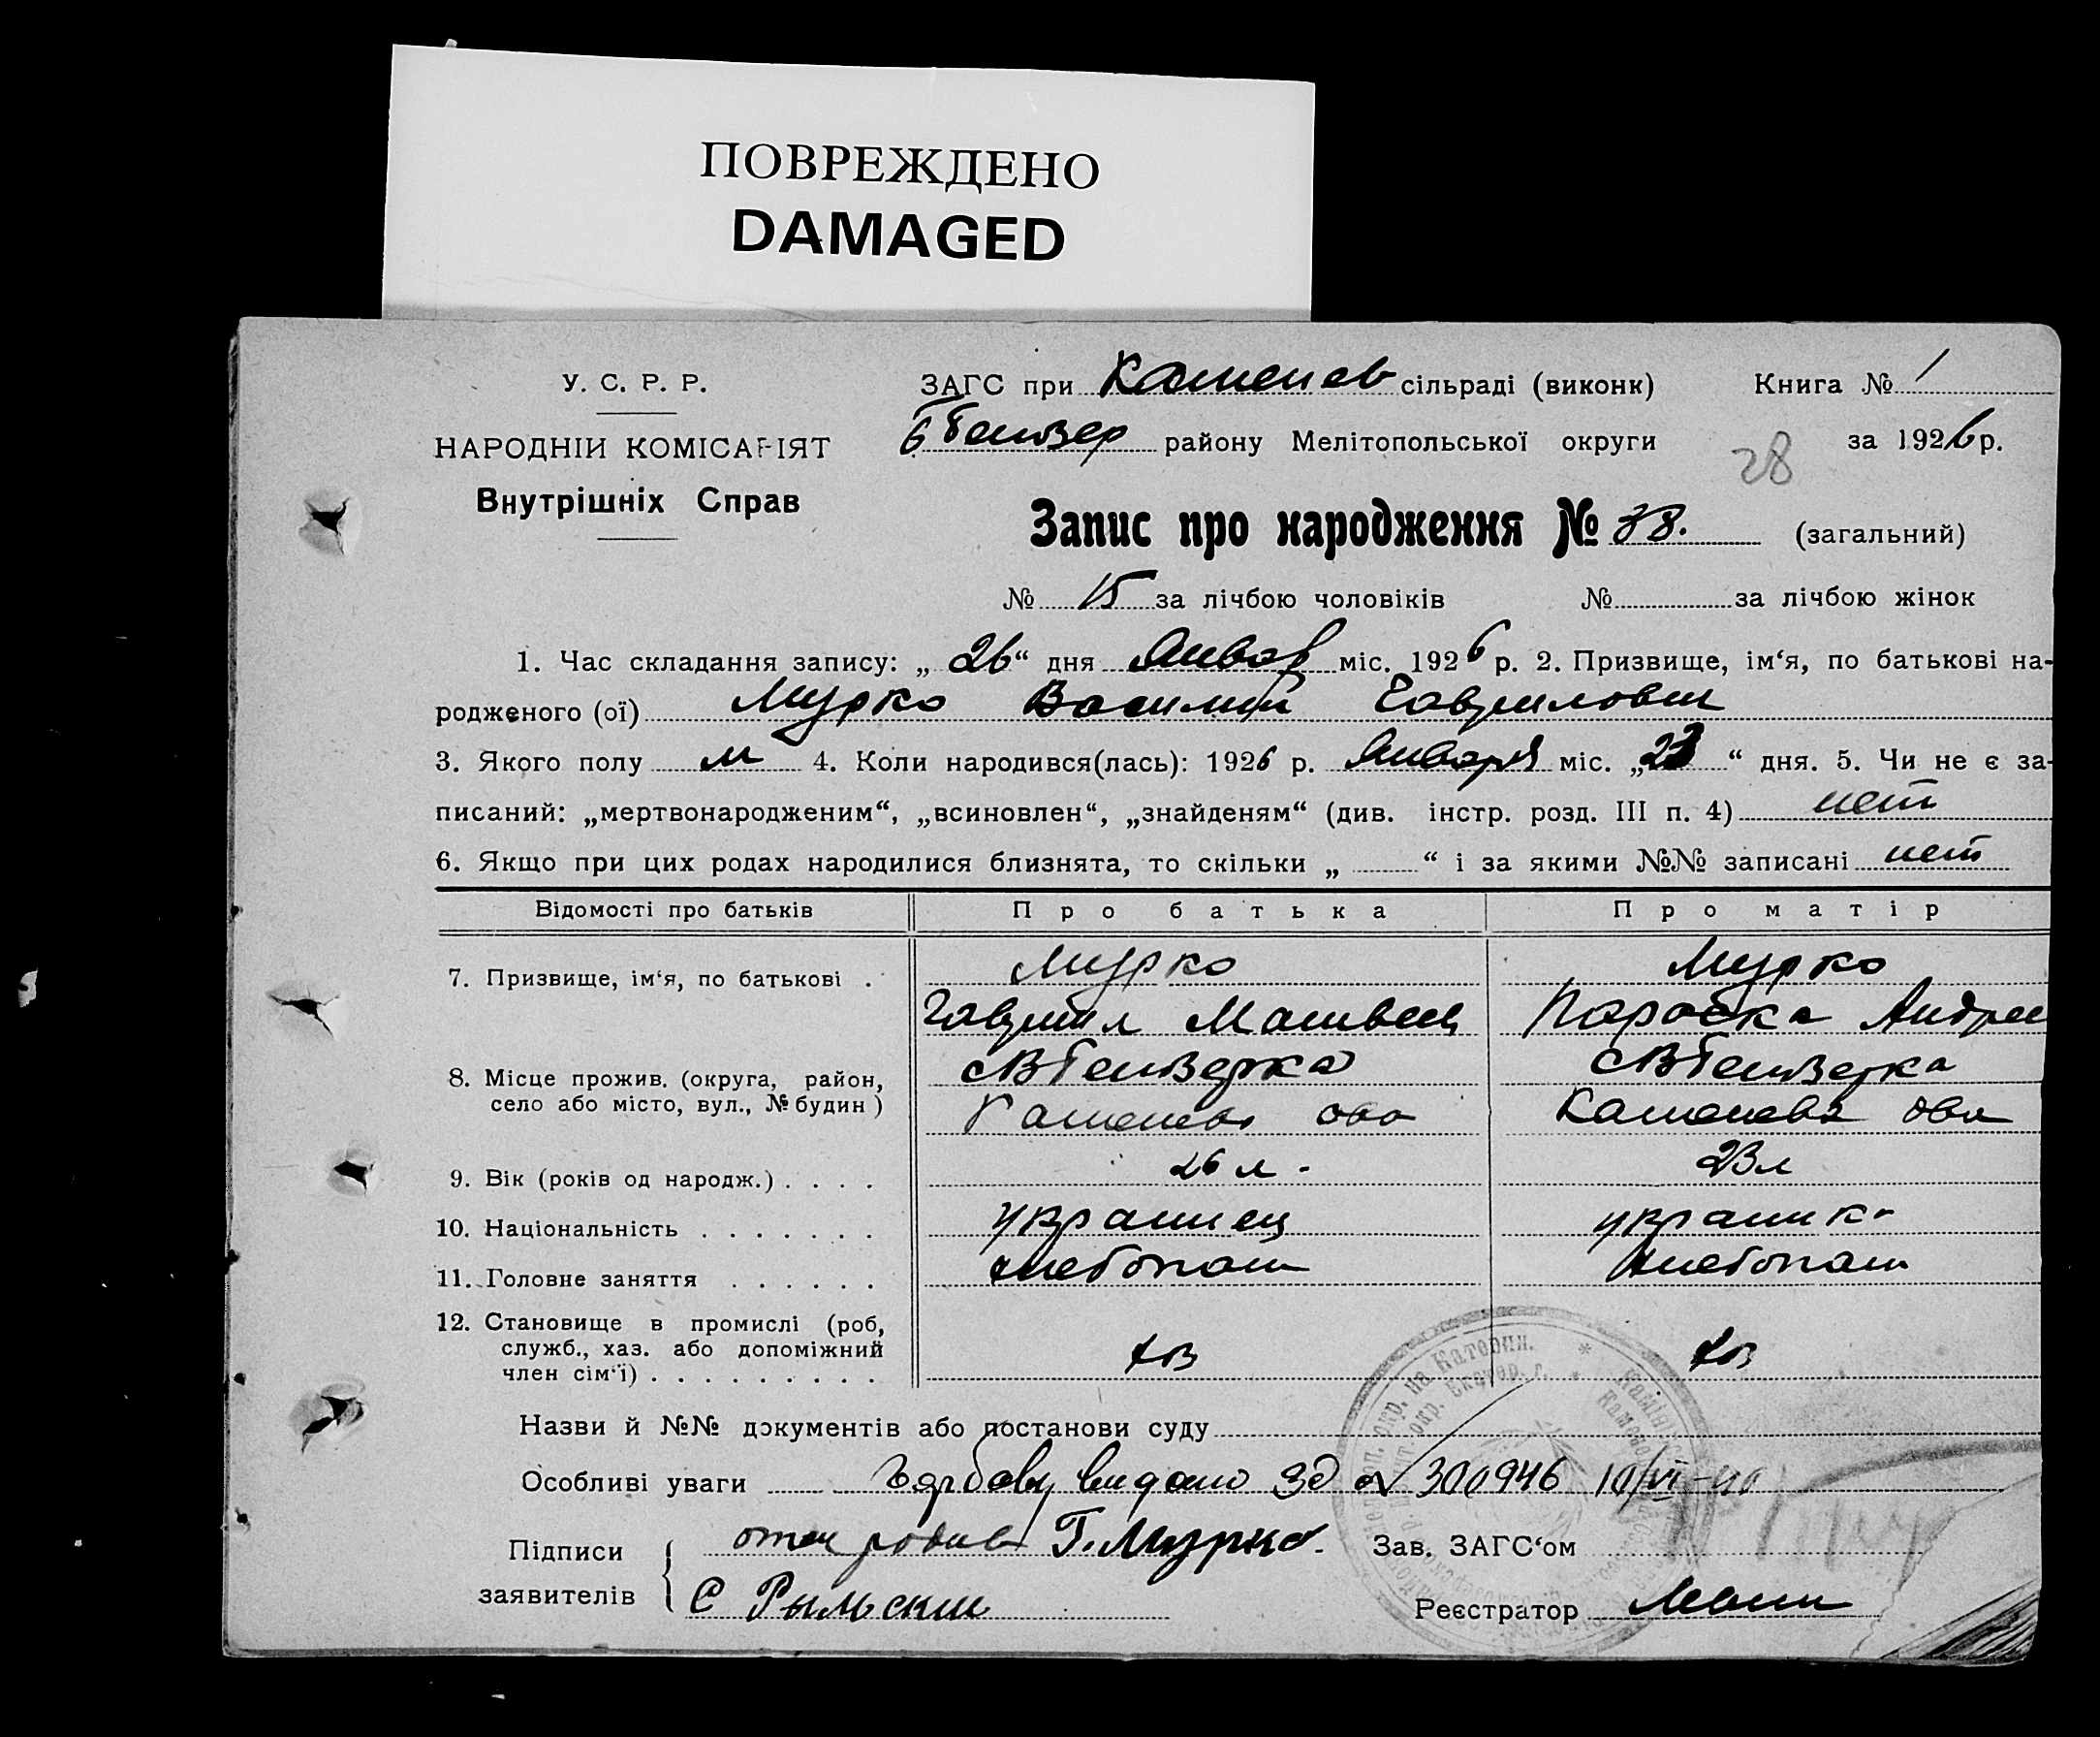 ПОВРЕЖДЕНО
DAMAGED
У. С. Р. Р.
НАРОДНІЙ КОМІСАРІЯТ
Внутрішніх Справ
ЗАГС при Каменев сільраді (виконк) Книга № 1
району Мелітопольської округи за 1926 р.
28
Запис про народження № 28. (загальний)
№ 15 за лічбою чоловіків № за лічбою жінок
1. Час складання запису: „ 26 “ дня Январ міс. 1926 р. 2. Призвище, ім‘я, по батькові на-
родженого (ої) Мурко Василий Гаврилович
3. Якого полу м 4. Коли народився(лась): 1926 р. Января міс. „23 “ дня. 5. Чи не є за-
писаний: „мертвонародженим“, „всиновлен“, „знайденям“ (див. інстр. розд. III п. 4) нет
6. Якщо при цих родах народилися близнята, то скільки „ “ і за якими №№ записані нет
Відомості про батьків Про батька Про матір
7. Призвище, ім‘я, по батькові . Мурко Мурко
Гавриил Матвеев Параска Андрее
8. Місце прожив. (округа, район, село або місто, вул., № будин) СВТокмачка СВТокмачка
Каменева Каменева
9. Вік (років од народж.) . . . . 26 л - 23 л
10. Національність . . . . . . . украинец украинка
11. Головне заняття . . . . . . хлебопаш хлебопаш
12. Становище в промислі (роб, служб., хаз. або допоміжний член сім‘ї) . . . . . . . . . хоз хоз
Назви й №№ документів або постанови суду
Особливі уваги видано 300946 10/VI-40
Підписи заявителів отец Г. Мурко. Зав. ЗАГС‘ом
Є Рыльский Реєстратор